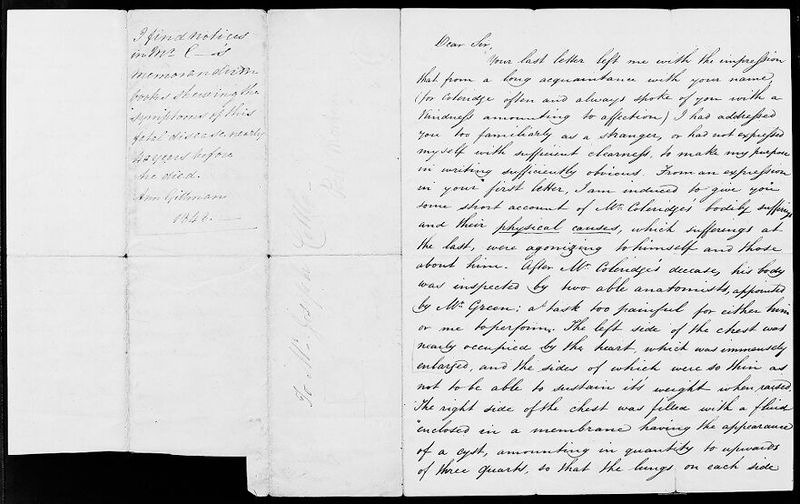 I find notices
in Mr C—'s
memorandum
books shewing the
symptoms of this
fatal disease nearly
years before
he died.
Ann Gillman
184
To Mr Joseph
Dear Sir,
Your last letter left me with the impression
that from a long acquaintance with your name,
(for Coleridge often and always spoke of you with a
kindness amounting to affection) I had addressed
you too familiarly as a stranger, or had not expressed
myself with sufficient clearness, to make my purpose
in writing sufficiently obvious. From an expression
in your first letter, I am induced to give you
some short account of Mr Coleridge's bodily sufferings
and their physical causes, which sufferings at
the last, were agonizing to himself and those
about him. After Mr Coleridge's decease, his body
was inspected by two able anatomists, appointed
by Mr Green; a task too painful for either him
or me to perform. The left side of the chest was
nearly occupied by the heart, which was immensely
enlarged, and the sides of which were so thin as
not to be able to sustain its weight when raised.
The right side of the chest was filled with a fluid
enclosed in a membrane having the appearance
of a cyst, amounting in quantity to upwards
of three quarts, so that the lungs on each side